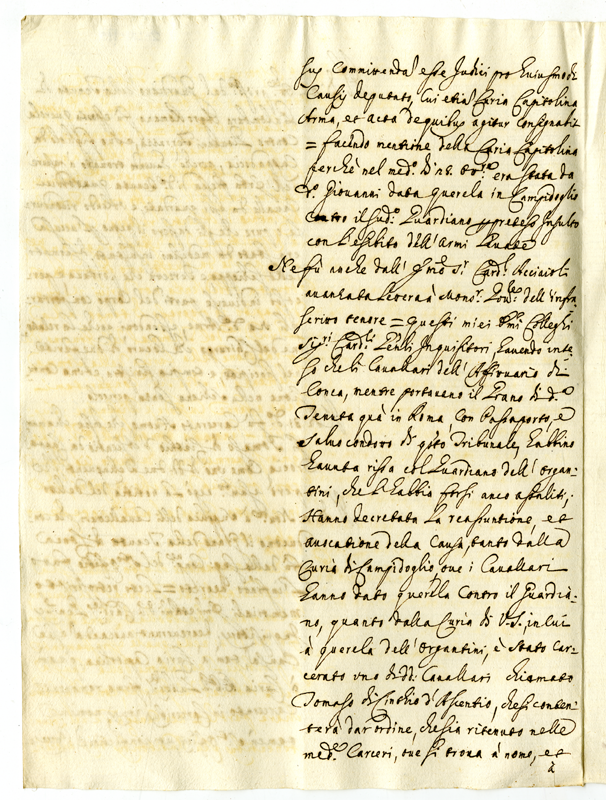 sup. Commictenda esse Judici pro huiusmodi
Causis deputato, cui etiā Curia Capitolina
Arma, et acta de quibus agitur consignabit
= facendo mentione della Curia Capitolina
perche nel med.º dì era stata da
Giovanni data querela in Campidoglio
contro il sud.º Guardiano preteso Insulto
con l'esibito dell'Armi
Ne fù anche dall' Em̄o S.r Card.l Acciaioli
avanzata lettera à Mons.r dell' infra
scritto tenore = questi miei Em̄i Colleghi
Sig.ri Card.li Gen̄li Inquisitori, havendo inte-
so che li Cavallari dell' Affittuario di
Conca, mentre portavano il Grano di d.ª
Tenuta quà in Roma con Passaporto, e
salvo condotto di q̄sto Tribunale, habbino
havuta rissa col Guardiano dell' Organ-
tini, che li habbia forsi anco assaliti;
Hanno decretata la reassuntione, et
avocatione della Causa, tanto dalla
Curia di Campidoglio, ove i Cavallari
hanno dato querela contro il Guardia-
no, quanto dalla Curia di V.S., in cui
à querela dell' Organtini, è stato car-
cerato uno di dd. Cavallari chiamato
Tomaso di Cinthio d'Ascentio, che si conten-
terà dar ordine, che sia ritenuto nelle
med.e Carceri, ove si trova à nome, et
à